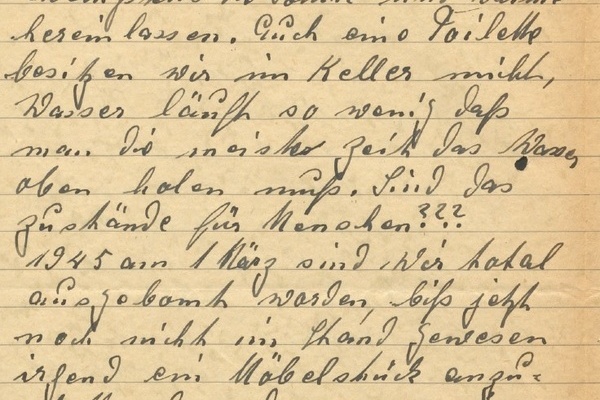 hereinlassen. Auch eine Toilette
besitzen wir im Keller nicht,
Wasser läuft so wenig daß
man die meiste zeit das Wasser
oben holen muß. Sind das
zustände für Menschen???
1945 am 1 März sind wir total
ausgebomt worden, biß jetzt
noch nicht im stand gewesen
irgend ein Möbelstück anzu=